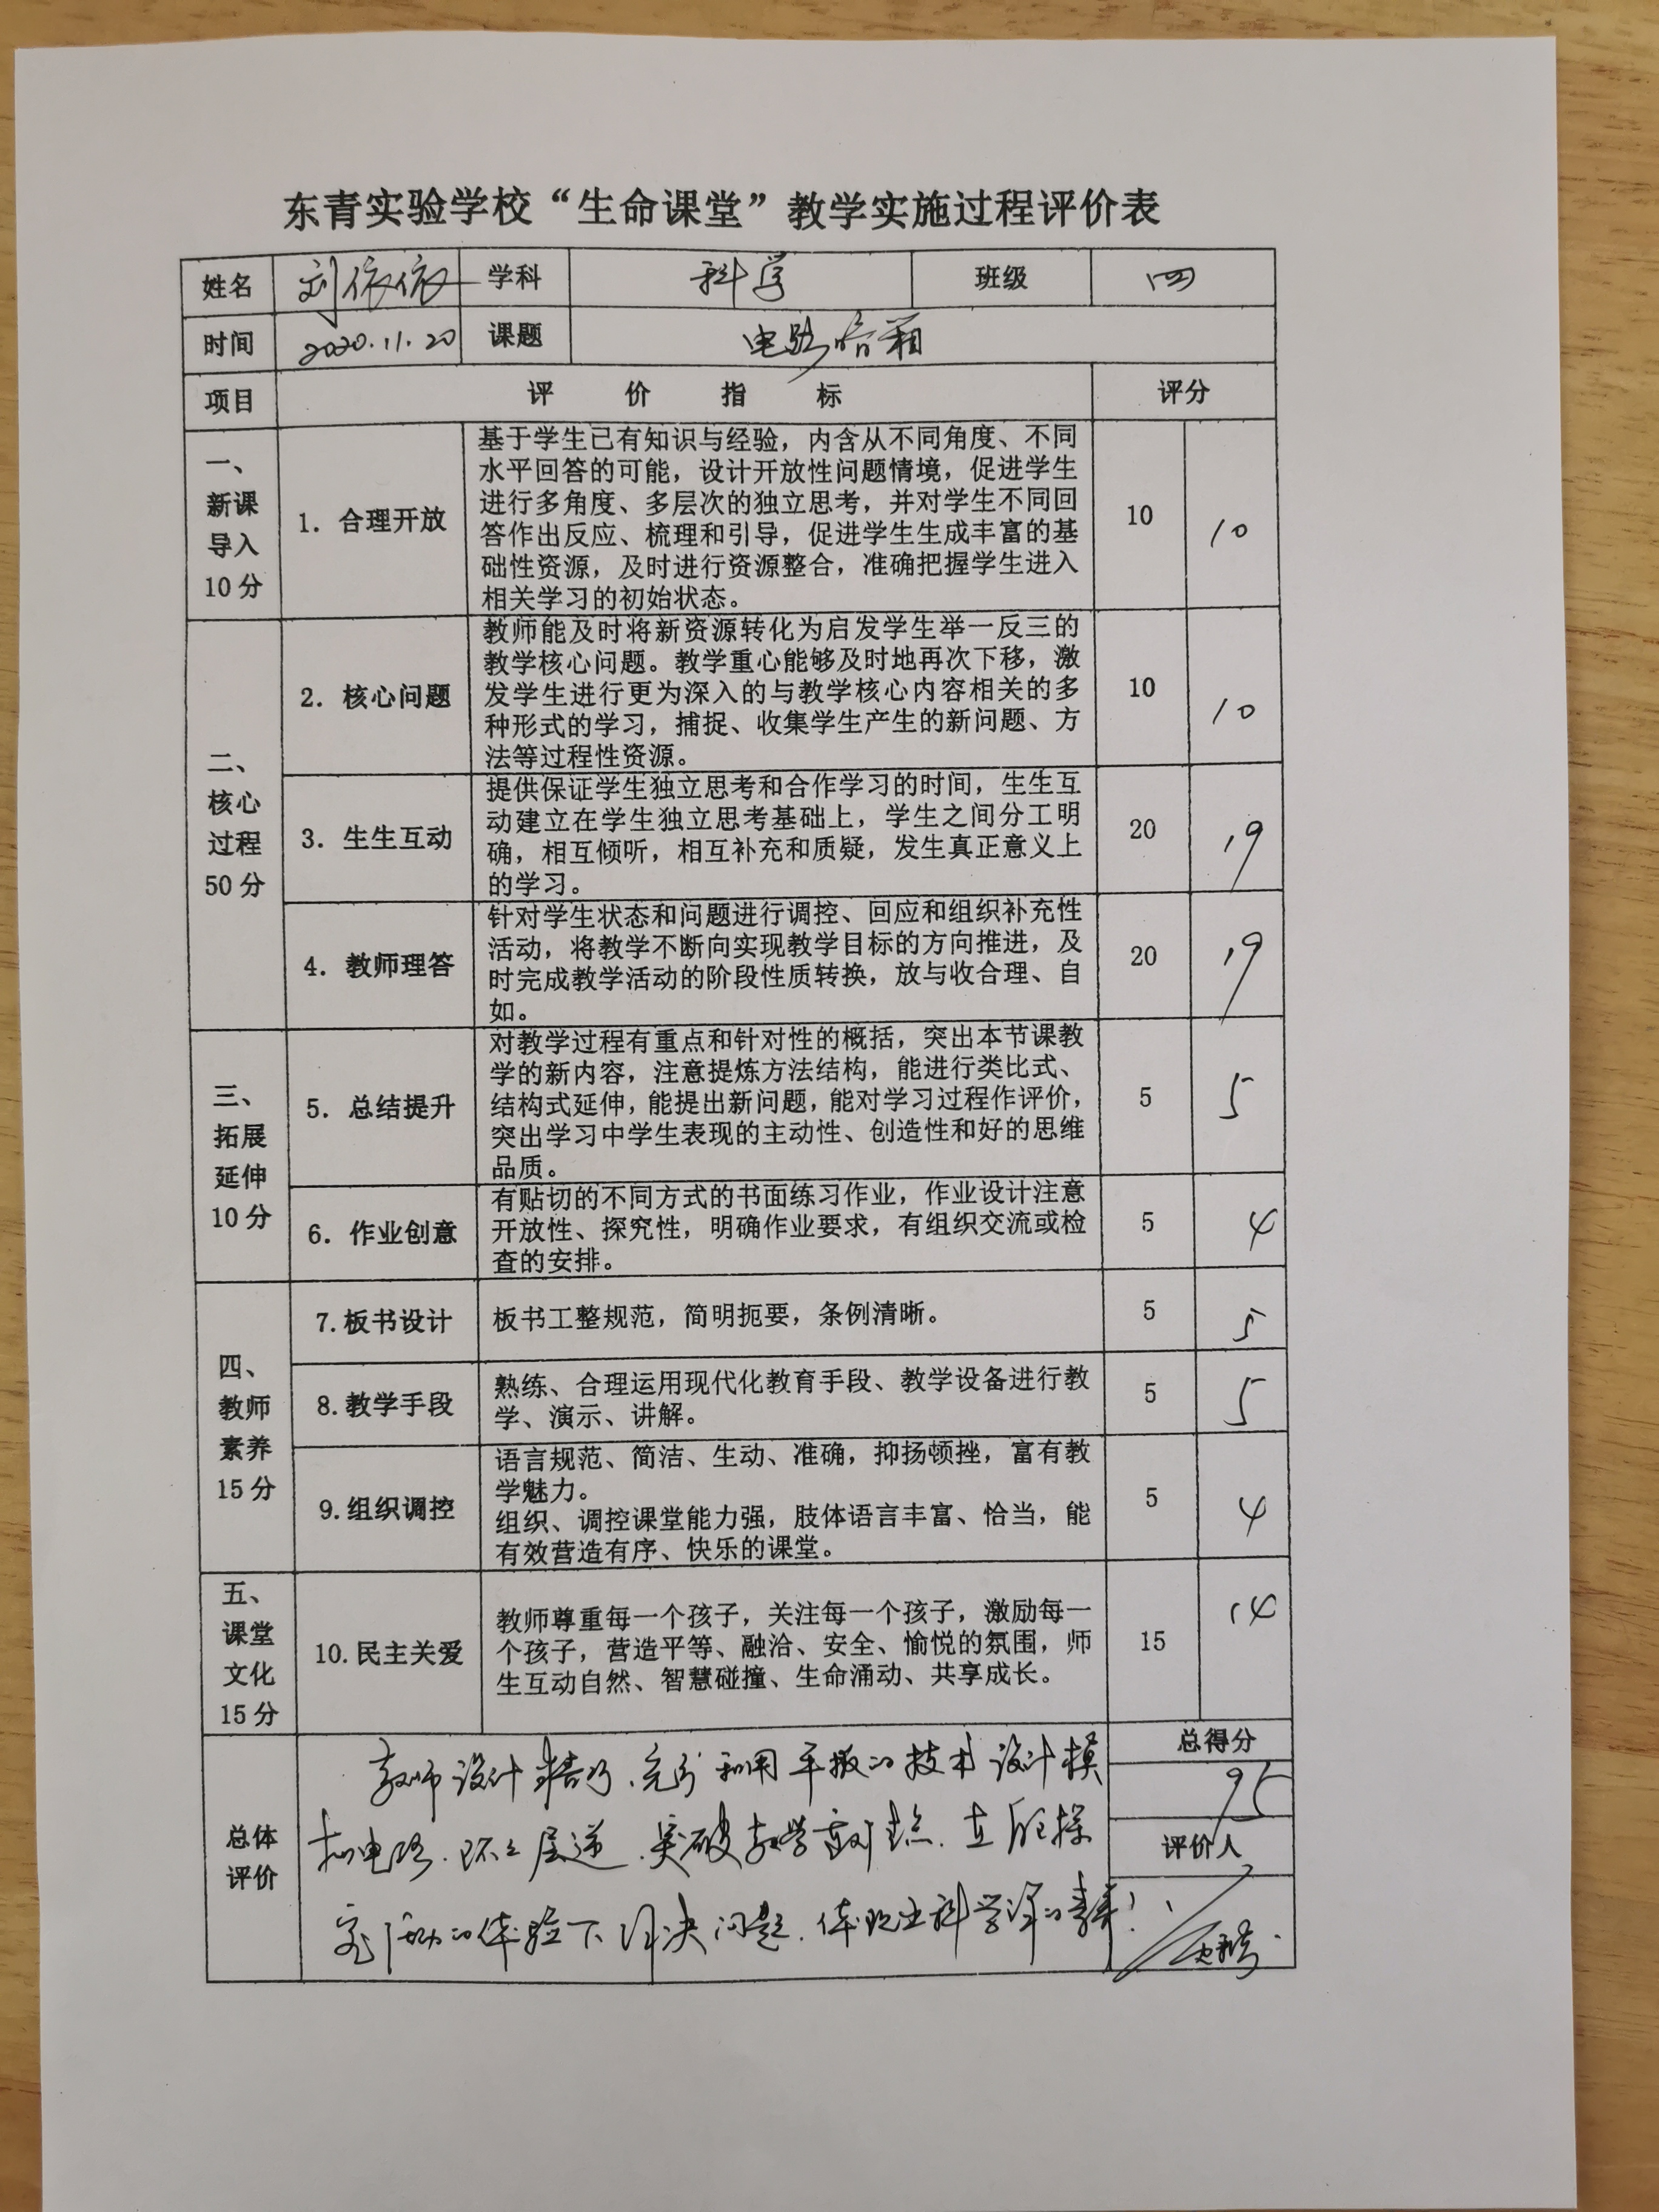 东青实验学校“生命课堂”教学实施过程评价表
姓名 刘依依 学科 科学 班级 四
时间 2020.11.20 课题 电路暗箱
项目 评 价 指 标 评分
一、
新课
导入
10分
1. 合理开放
基于学生已有知识与经验，内含从不同角度、不同
水平回答的可能，设计开放性问题情境，促进学生
进行多角度、多层次的独立思考，并对学生不同回
答作出反应、梳理和引导，促进学生生成丰富的基
础性资源，及时进行资源整合，准确把握学生进入
相关学习的初始状态。
10 10
二、
核心
过程
50分
2. 核心问题
教师能及时将新资源转化为启发学生举一反三的
教学核心问题。教学重心能够及时地再次下移，激
发学生进行更为深入的与教学核心内容相关的多
种形式的学习，捕捉、收集学生产生的新问题、方
法等过程性资源。
10 10
3. 生生互动
提供保证学生独立思考和合作学习的时间，生生互
动建立在学生独立思考基础上，学生之间分工明
确，相互倾听，相互补充和质疑，发生真正意义上
的学习。
20 19
4. 教师理答
针对学生状态和问题进行调控、回应和组织补充性
活动，将教学不断向实现教学目标的方向推进，及
时完成教学活动的阶段性质转换，放与收合理、自
如。
20 19
三、
拓展
延伸
10分
5. 总结提升
对教学过程有重点和针对性的概括，突出本节课教
学的新内容，注意提炼方法结构，能进行类比式、
结构式延伸，能提出新问题，能对学习过程作评价，
突出学习中学生表现的主动性、创造性和好的思维
品质。
5 5
6. 作业创意
有贴切的不同方式的书面练习作业，作业设计注意
开放性、探究性，明确作业要求，有组织交流或检
查的安排。
5 4
四、
教师
素养
15分
7.板书设计
板书工整规范，简明扼要，条例清晰。
5 5
8.教学手段
熟练、合理运用现代化教育手段、教学设备进行教
学、演示、讲解。
5 5
9.组织调控
语言规范、简洁、生动、准确，抑扬顿挫，富有教
学魅力。
组织、调控课堂能力强，肢体语言丰富、恰当，能
有效营造有序、快乐的课堂。
5 4
五、
课堂
文化
15分
10.民主关爱
教师尊重每一个孩子，关注每一个孩子，激励每一
个孩子，营造平等、融洽、安全、愉悦的氛围，师
生互动自然、智慧碰撞、生命涌动、共享成长。
15 14
总体
评价
教师设计精巧、充分利用平板的技术设计模
拟电路、环环层递、突破教学重点、在
活动的体验下解决问题、体现出科学课的
总得分
95
评价人